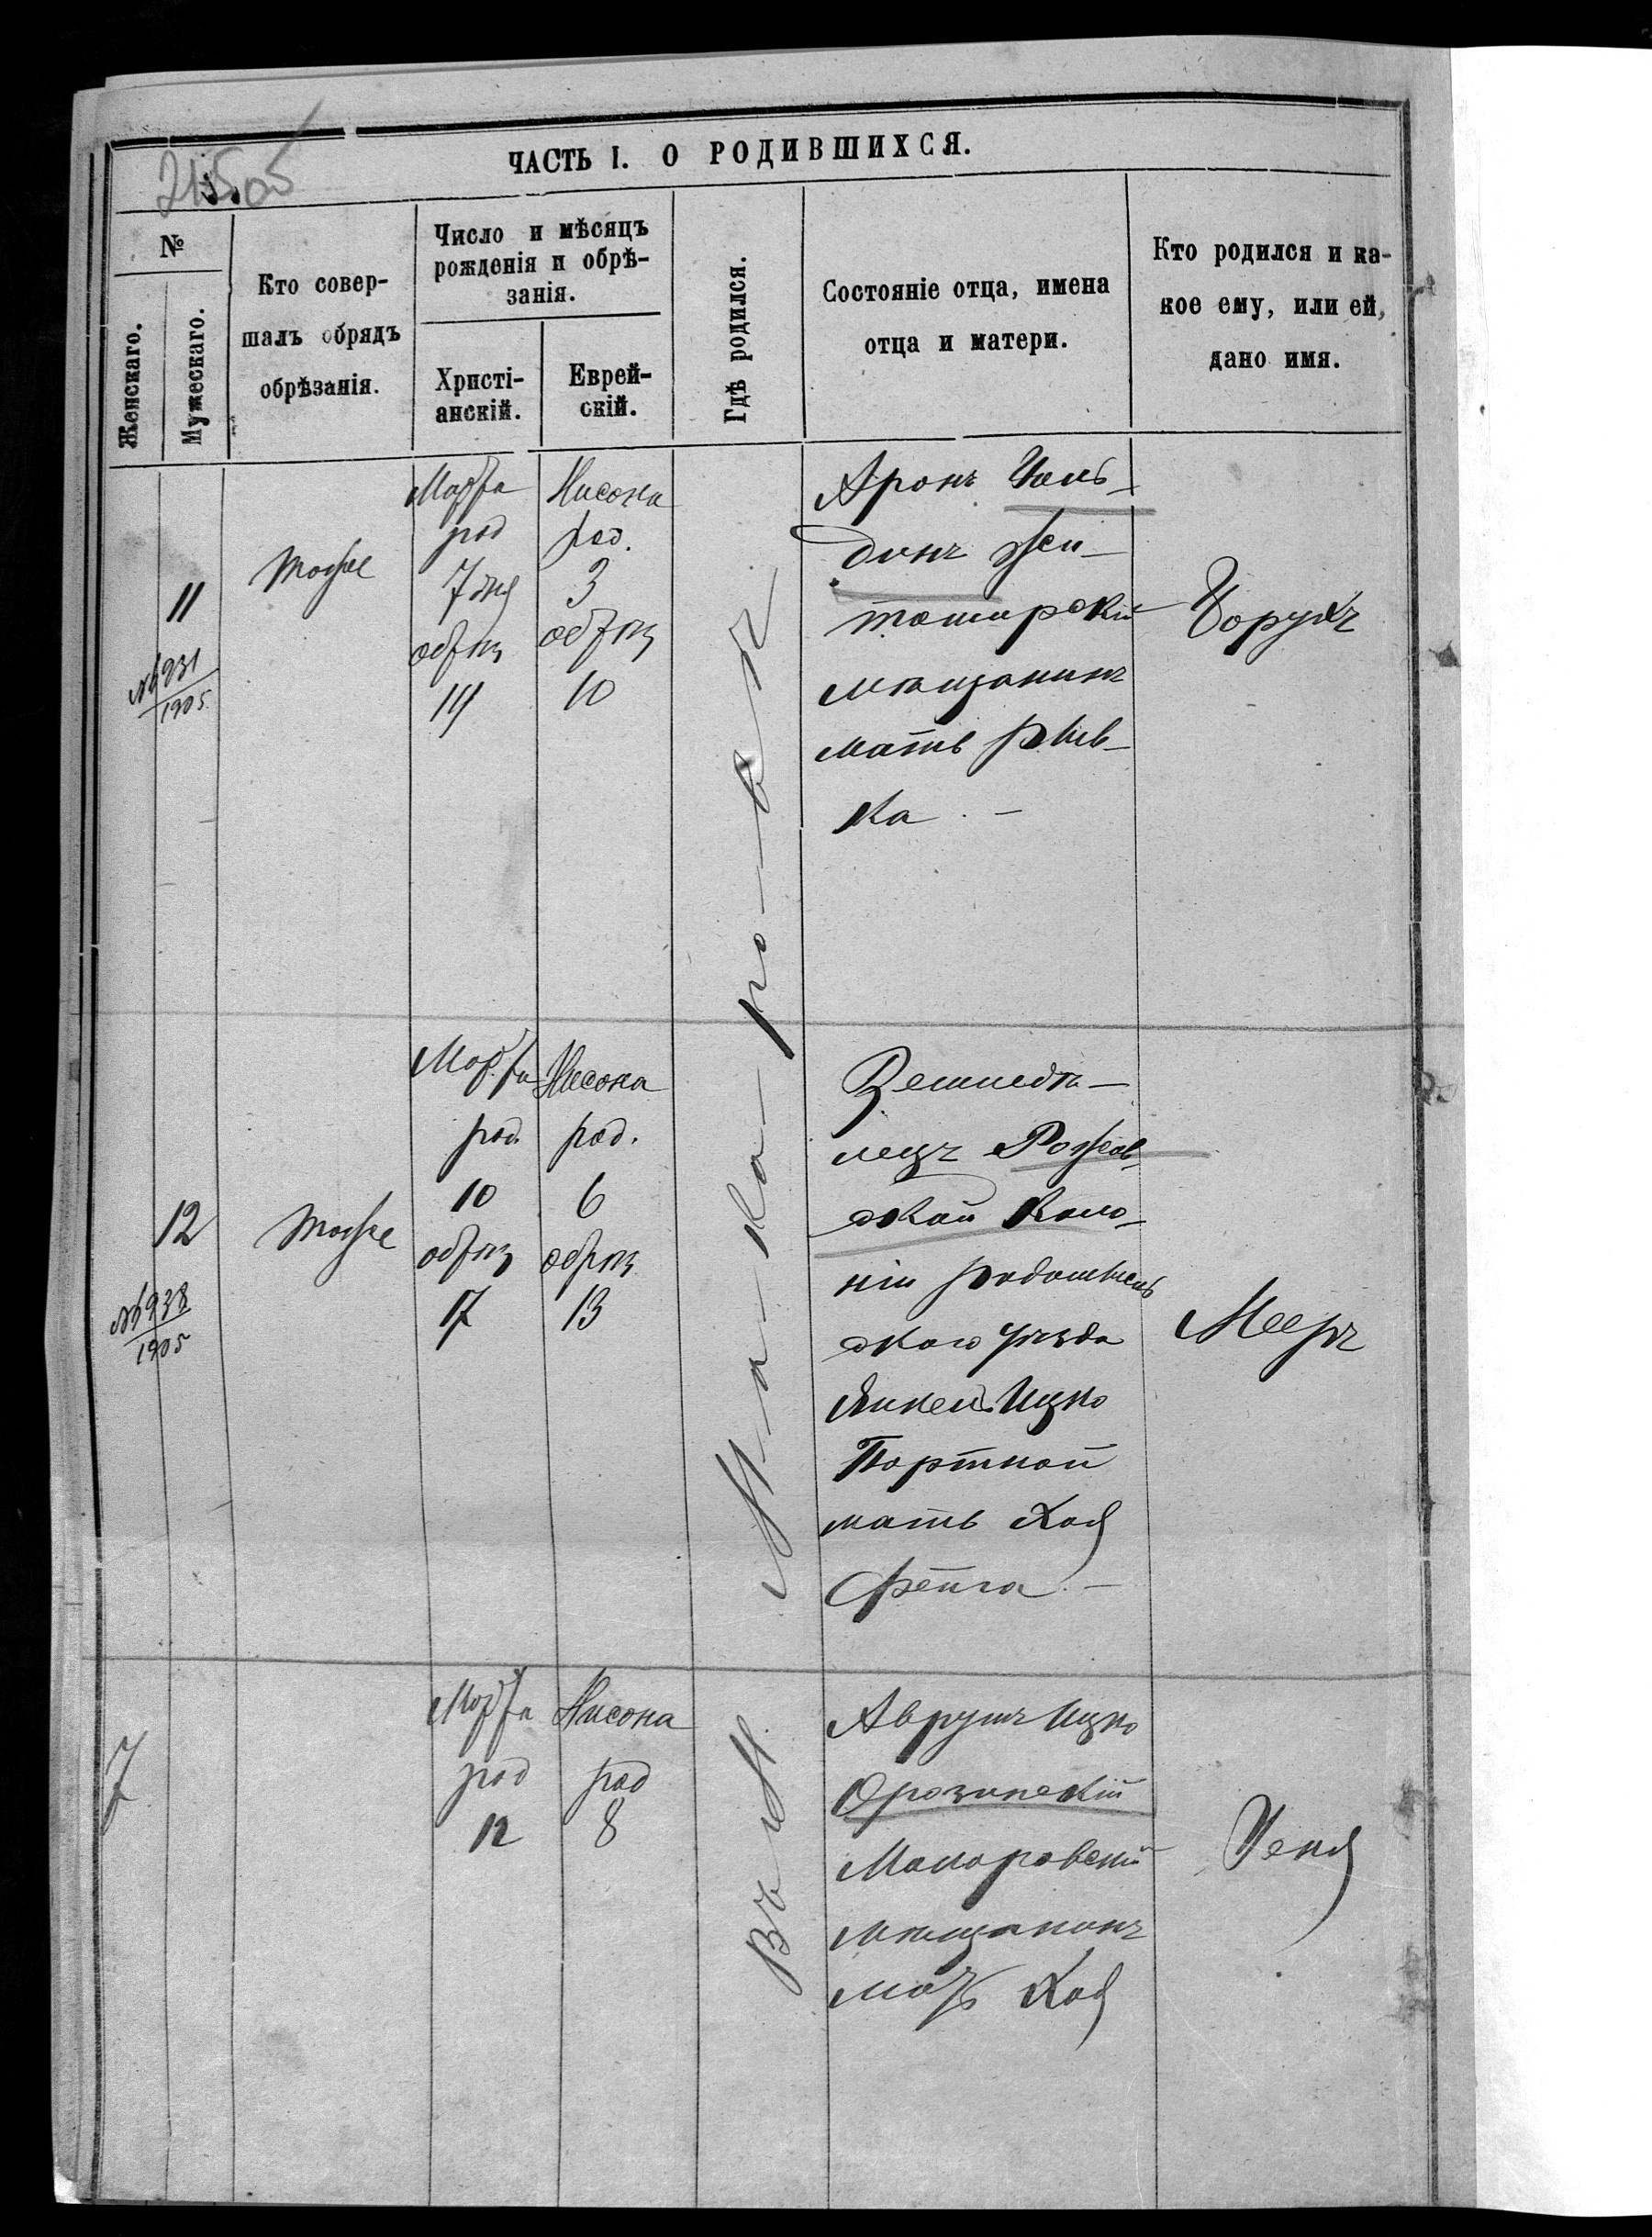 ЧАСТЬ I. О РОДИВШИХСЯ.
215об
№
Женскаго.
Мужескаго.
Кто совер-
шалъ обрядъ
обрѣзанія.
Число и мѣсяцъ
рожденія и обрѣ-
занія.
Христі-
анскій.
Еврей-
скій.
Гдѣ родился.
Состояніе отца, имена
отца и матери.
Кто родился и ка-
кое ему, или ей,
дано имя.
11
№ 931
1905
Мошке
Марта
род
7 дня
обрѣз
14
Нисона
род.
3
обрѣз
10
Въ М. Макаровѣ
Аронъ
динъ Жи-
томирскій
мѣщанинъ
мать Рив-
ка. —
Борухъ
12
№ 938
1905
Мошке
Марта
род.
10
обрѣз
17
Нисона
род.
6
обрѣз
13
Земледѣ-
лецъ Рожев-
ской Коло-
ніи Радомысль
скаго уѣзда
Янкель Ицко
Портной
мать Хая
Фейга. —
Мееръ
7
Марта
род
12
Нисона
род
8
Аврумъ Ицко
Макаровскій
мѣщанинъ
мать Хая